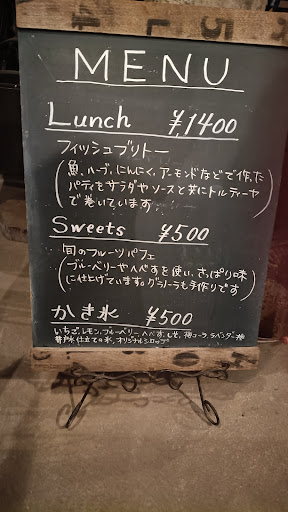 MENU
Lunch ¥1400
フィッシュブリトー
(魚、ハーブ、にんにく、アーモンドなどで作った
パティをサラダやソースと共にトルティーヤ
で巻いています。)
Sweets ¥500
旬のフルーツパフェ
(ブルーベリーやへべすを使い、さっぱり味
に仕上げています。グラノーラも手作りです)
かき氷 ¥500
いちご、レモン、ブルーベリー、へべす、しそ、梅コーラ、ラベンダー
仕立ての氷、オリジナルシロップ